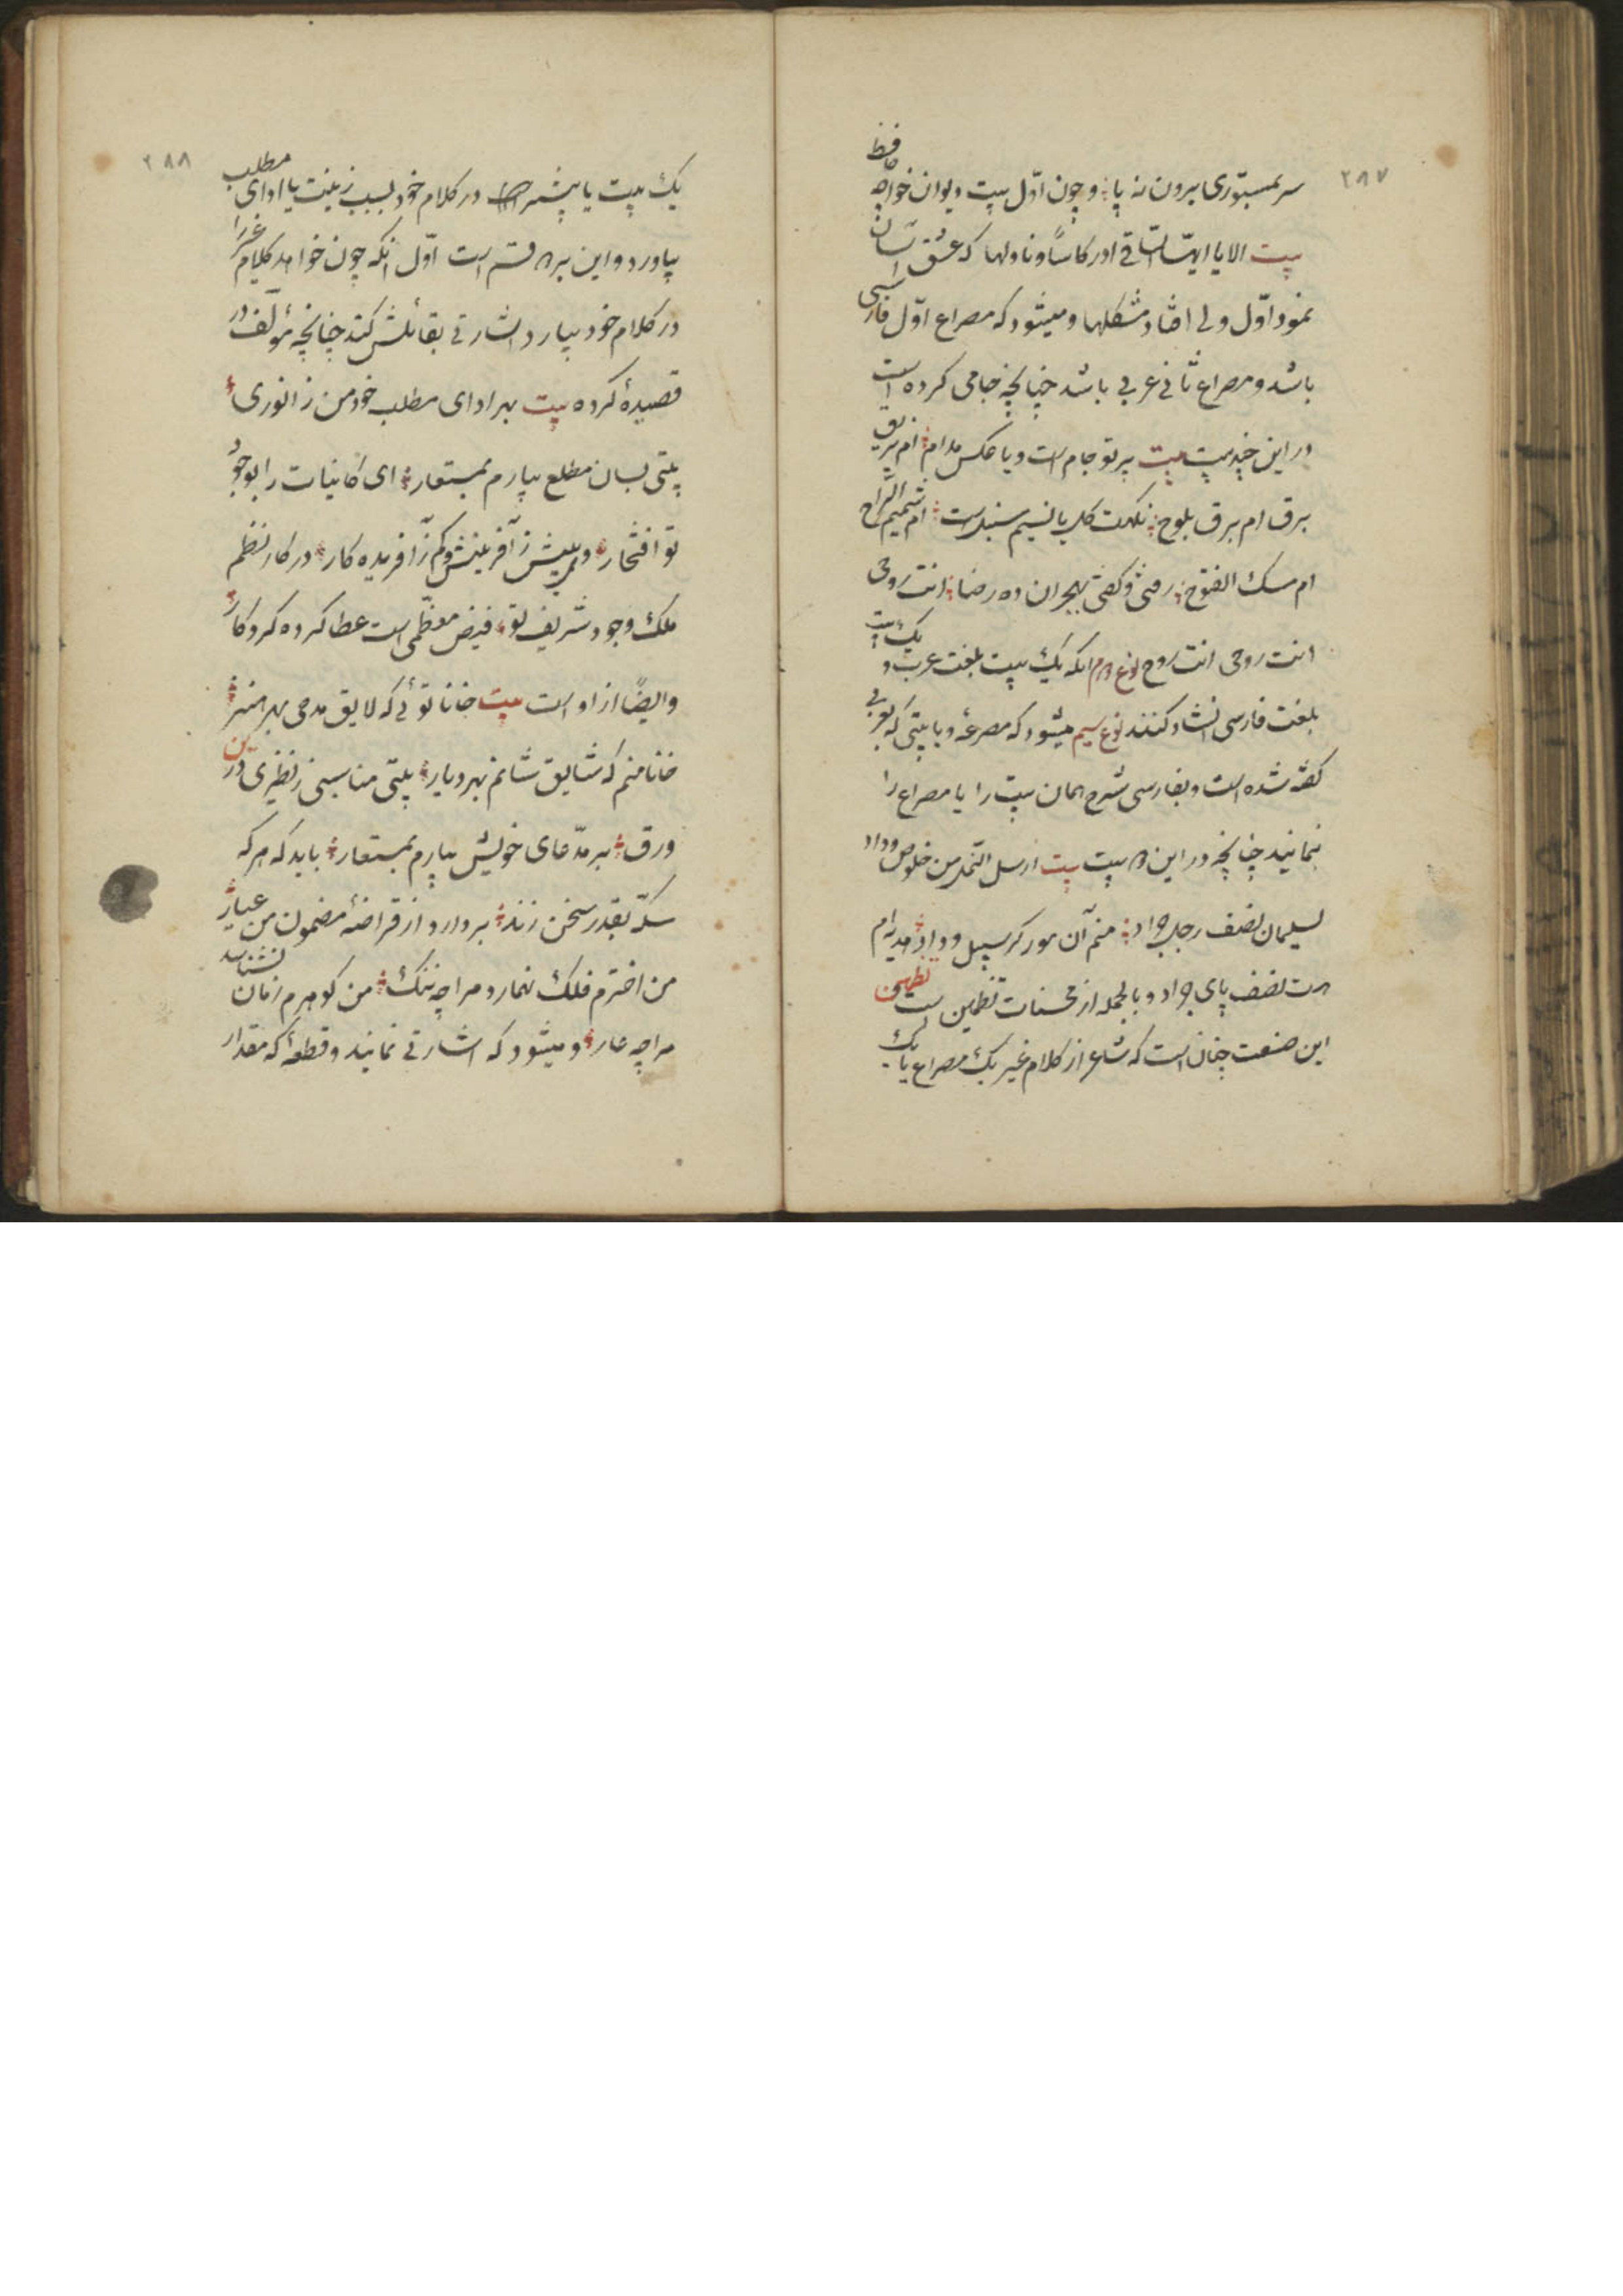 ۲۸۷
سر بمستوری بیرون نه پا ؛ و چون اوّل بیت دیوان خواجه حافظ
بیت الا یا ایّها السّاقی ادر کاساً و ناولها که عشق آسان
نمود اوّل ولی افتاد مشکلها و میشود که مصراع اوّل فارسی
باشد و مصراع ثانی عربی باشد چنانچه جامی کرده است
در این چند بیت بیت پرتو جام است و یا عکس مدام ؛ ام بریق
برق ام برق یلوح ؛ نکهت کل یا نسیم سنبل است ؛ ام شمیم الرّاح
ام مسک الفتوح ؛ رفتی و کفتی بهجران ده رضا ؛ انت روحی
انت روحی انت روح نوع دوم انکه یک بیت بلغت عرب و یک بیت
بلغت فارسی انشاد کنند نوع سیم میشود که مصرعه و یا بیتی که بعربی
کفته شده است و بفارسی شرح همان بیت را یا مصراع را
نمایند چنانچه در این دو بیت بیت ارسل النّمل من خلوص وداد
لسلیمان نصف رجل جراد ؛ منم آن مور کز سبیل وداد ؛ هدیه‌ام
هست نصف پای جراد و بالجمله از محسنات تضمین است تضمین
این صنعت چنان است که شاعر از کلام غیر یک مصراع یا یک
۲۸۸
یک بیت یا بیشتر در کلام خود بسبب زینت یا ادای مطلب
بیاورد و این بر دو قسم است اوّل انکه چون خواهد کلام غیر را
در کلام خود بیارد اشارتی بقائلش کند چنانچه مؤلّف در
قصیدهٔ کرده بیت بهر ادای مطلب خود من ز انوری ؛
بیتی بسان مطلع بیارم بمستعار ؛ ای کاینات را بوجود
تو افتخار ؛ وی بیش ز آفرینش و کم ز آفریده کار ؛ در کار نظم
ملک وجود شریف تو ؛ فیض معظّمی است عطا کرده کردکار ؛
و ایضًا از او است بیت خانا توئی که لایق مدحی بهر هنر ؛
خانا منم که شایق شانم بهر دیار ؛ بیتی مناسبی ز نظیری در این
ورق ؛ بر مدّعای خویش بیارم بمستعار ؛ باید که هر که
سکّه بقدر سخن زند ؛ بردارد از قراضهٔ مضمون من عیار ؛
من اخترم فلک نهمارد مرا چه ننک ؛ من کوهرم زمان نشناسد
مرا چه عار ؛ و میشود که اشارتی نمایند و قطعهٔ که مقدار